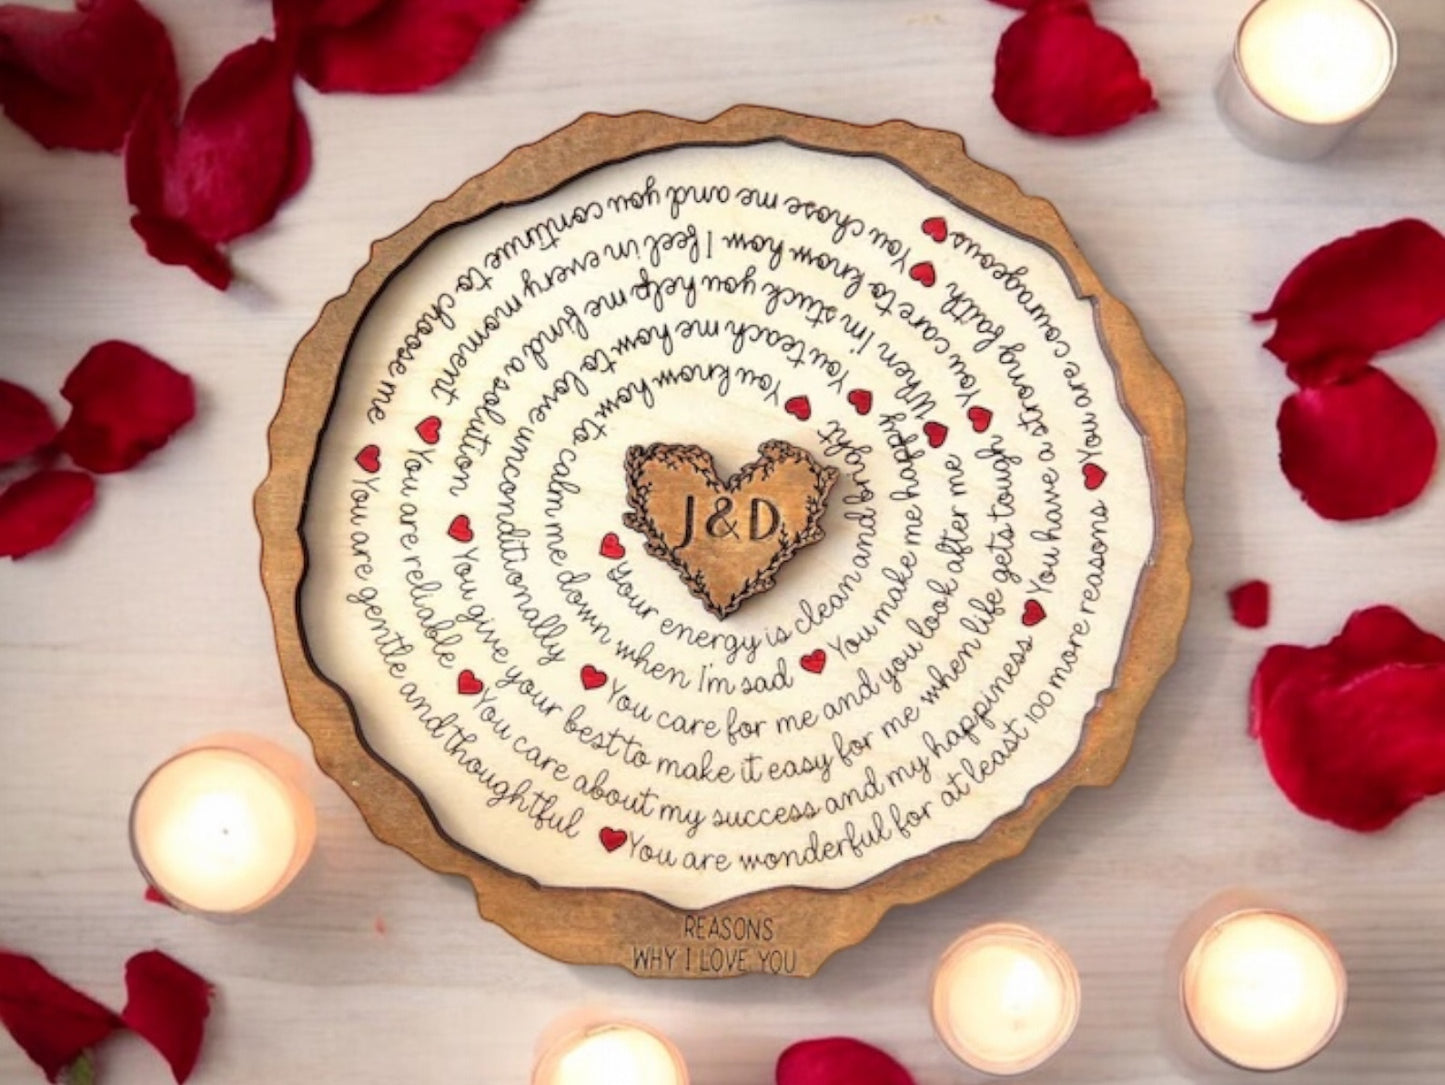 J & D
Your energy is clean and bright
You know how to calm me down when I'm sad
You make me happy
You teach me how to love unconditionally
You care for me and you look after me
When I'm stuck you help me find a solution
You give your best to make it easy for me when life gets tough
You care to know how I feel in every moment
You are reliable
You care about my success and my happiness
You have a strong faith
You chose me and you continue to choose me
You are gentle and thoughtful
You are wonderful for at least 100 more reasons
You are courageous
REASONS
WHY I LOVE YOU